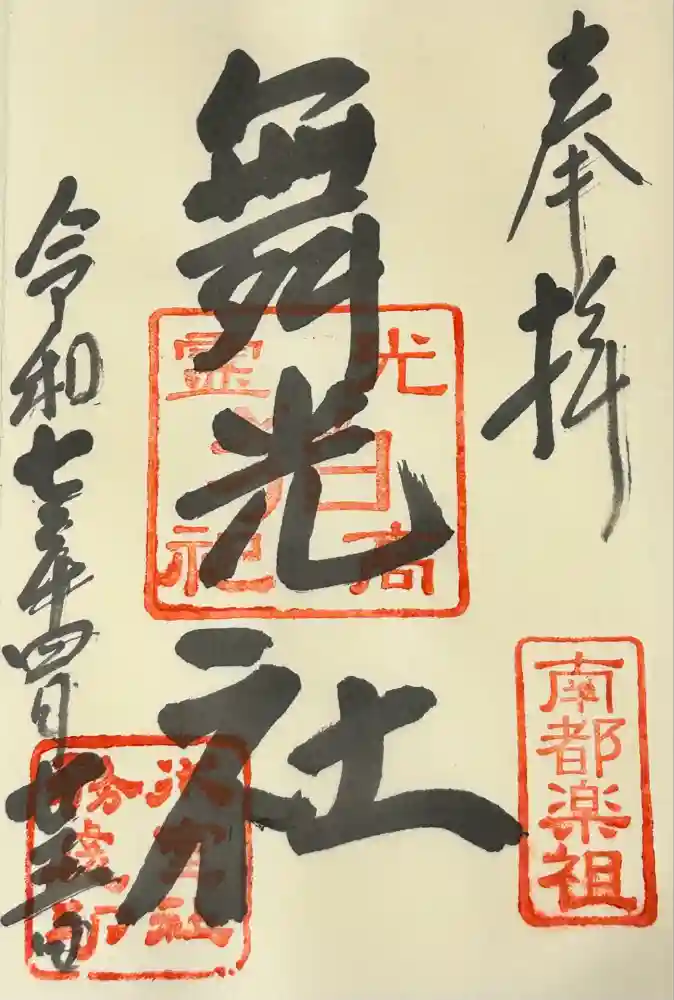 奉拝
舞光社
令和七年四月廿五日
南都楽祖
光日高